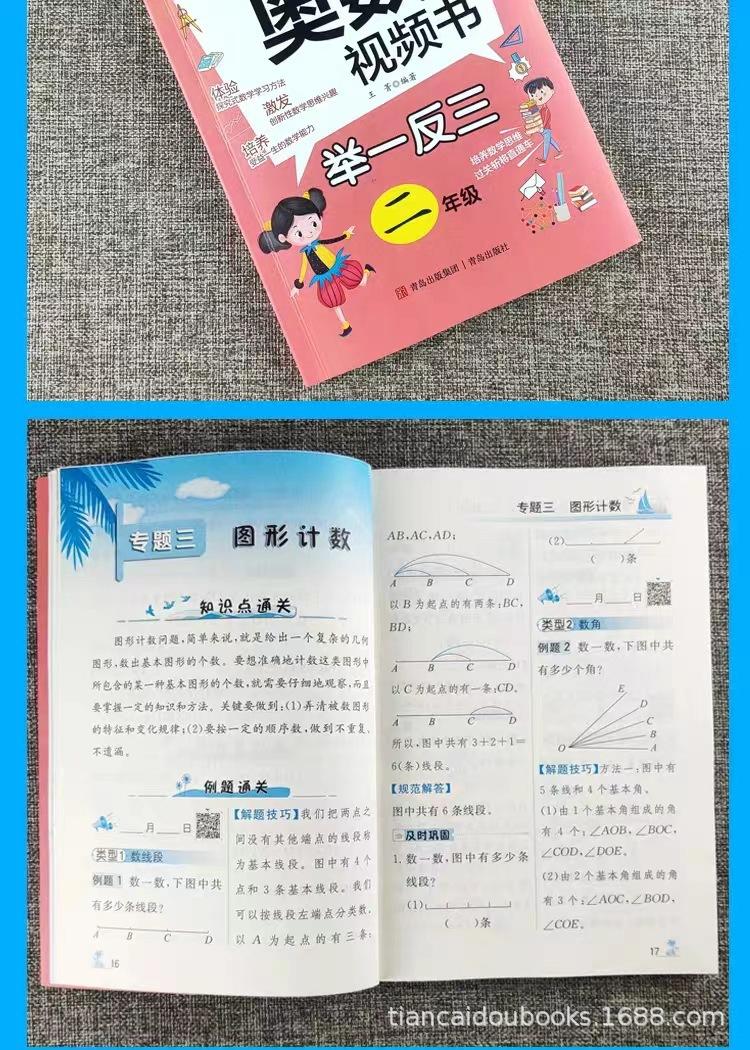 奥数
视频书
王菁◎编著
体验
探究式数学学习方法
激发
创新性数学思维兴趣
培养
受益一生的数学能力
举一反三
培养数学思维
过关斩将直通车
二年级
青岛出版集团 | 青岛出版社
专题三 图形计数
知识点通关
图形计数问题,简单来说,就是给出一个复杂的几何
图形,数出基本图形的个数。要想准确地计数这类图形中
所包含的某一种基本图形的个数,就需要仔细地观察,而且
要掌握一定的知识和方法。关键要做到:(1)弄清被数图形
的特征和变化规律;(2)要按一定的顺序数,做到不重复、
不遗漏。
例题通关
月 日
类型1 数线段
例题1 数一数,下图中共
有多少条线段?
A B C D
【解题技巧】我们把两点之
间没有其他端点的线段称
为基本线段。图中有4个
点和3条基本线段。我们
可以按线段左端点分类数,
以A为起点的有三条:
16
专题三 图形计数
AB,AC,AD;
A B C D
以B为起点的有两条:BC,
BD;
A B C D
以C为起点的有一条:CD。
A B C D
所以,图中共有3+2+1=
6(条)线段。
【规范解答】
图中共有6条线段。
及时巩固
1.数一数,图中有多少条
线段?
(1)
( )条
(2)
( )条
月 日
类型2 数角
例题2 数一数,下图中共
有多少个角?
E
D
C
B
O A
【解题技巧】方法一:图中有
5条线和4个基本角。
(1)由1个基本角组成的角
有4个:∠AOB,∠BOC,
∠COD,∠DOE。
(2)由2个基本角组成的角
有3个:∠AOC,∠BOD,
∠COE。
17
tiancaidoubooks.1688.com